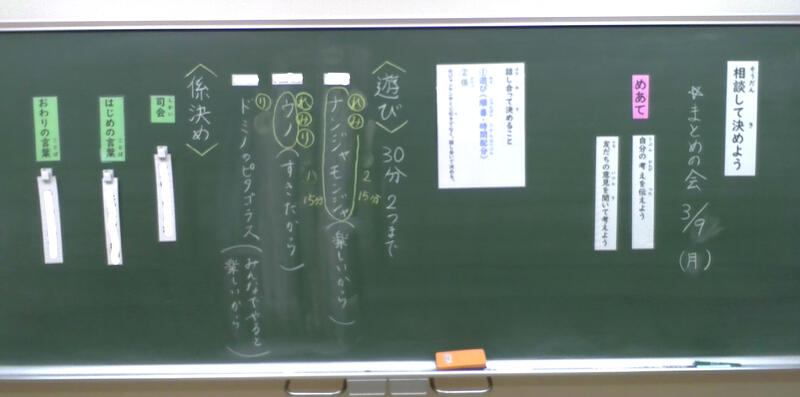 相談して決めよう
まとめの会 3/9(月)
めあて
自分の考えを伝えよう
友だちの意見を聞いて考えよう
話し合って決めること
①遊び(順番・時間配分)
②係
〈遊び〉 30分 2つまで
れ み
ナンジャモンジャ(楽しいから)
2 15分
れ み り
ウノ(すきだから)
1 15分
り
ドミノorピタゴラス(みんなでやると楽しいから)
〈係決め〉
司会
はじめの言葉
おわりの言葉